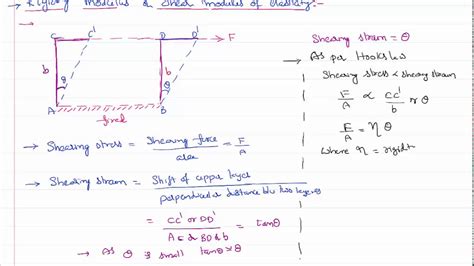 → Rigidity modulus & Shear modulus of elasticity:-
→
C C' D D' → F
b θ b θ
A B
fixed
Shearing strain = θ
→ As per Hooks law
Shearing stress ∝ shearing strain
F/A ∝ CC'/b or θ
F/A = η θ
where η = rigidity
→ Shearing stress = Shearing force/area = F/A
→ Shearing strain = Shift of upper layer/perpendicular distance b/w two layers
= CC' or DD'/AC or BD = b = tanθ
→ As θ is small tanθ ≈ θ